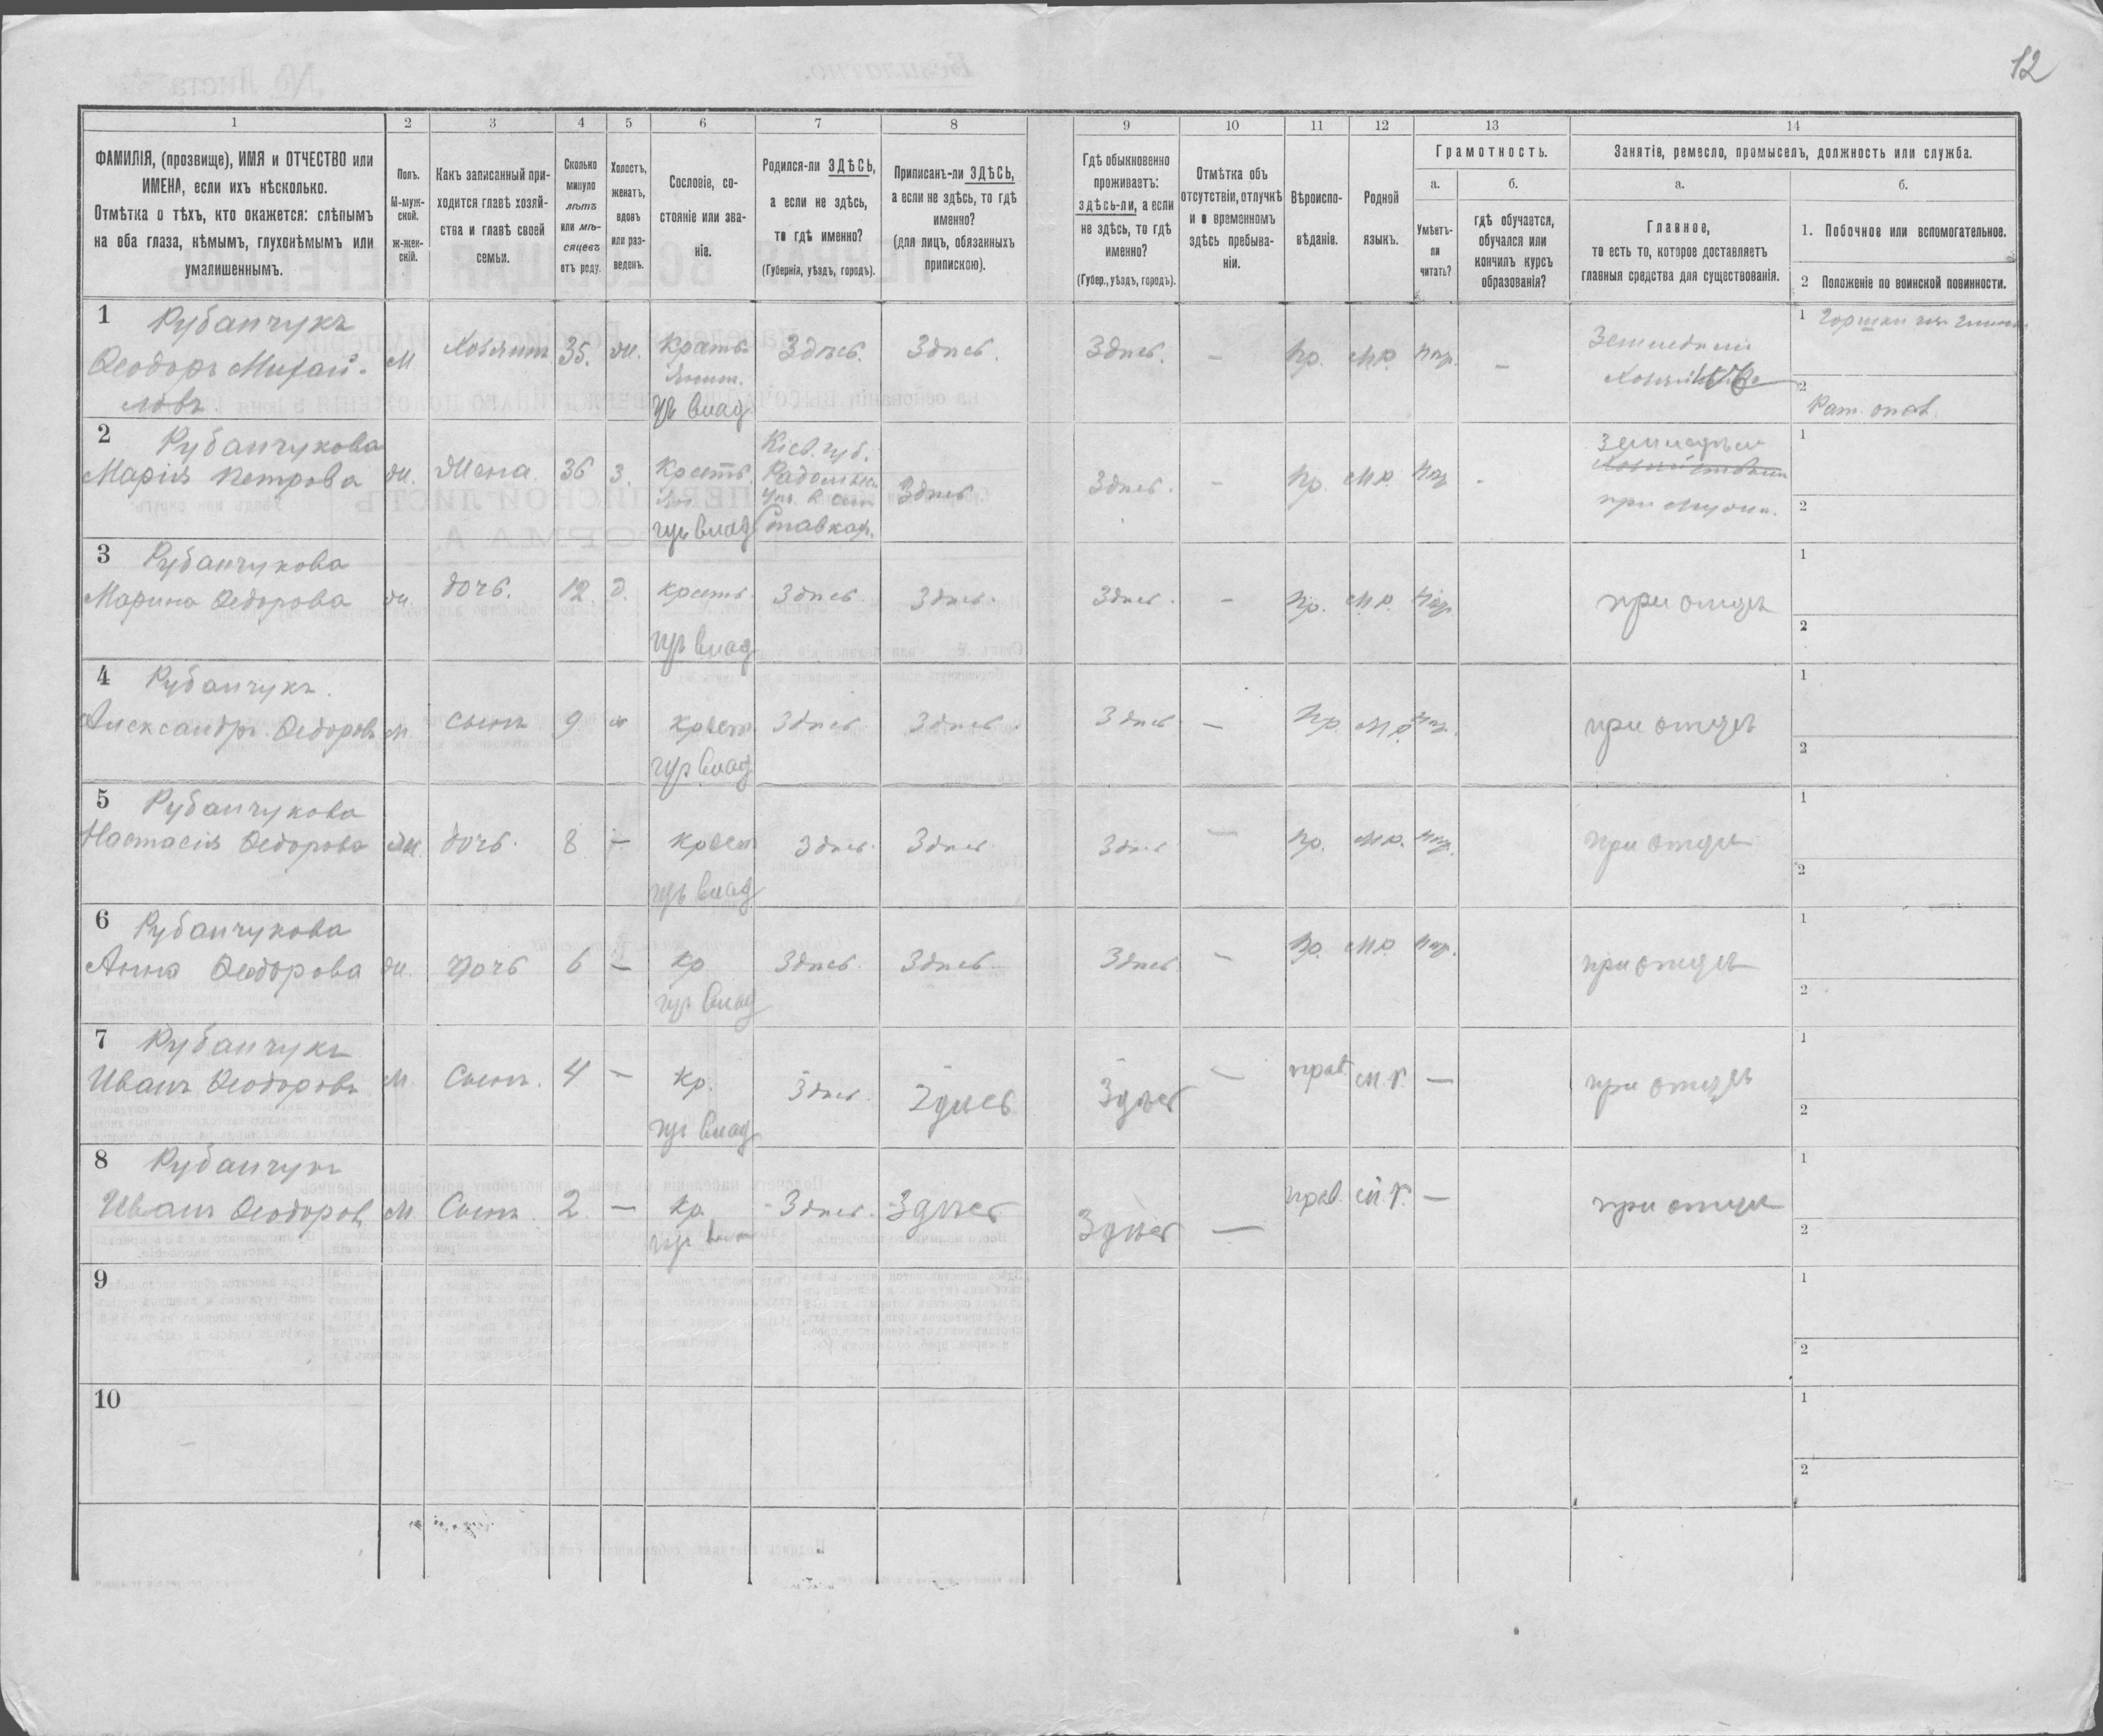 12
1
2
3
4
5
6
7
8
9
10
11
12
13
14
ФАМИЛІЯ, (прозвище), ИМЯ и ОТЧЕСТВО или
ИМЕНА, если ихъ нѣсколько.
Отмѣтка о тѣхъ, кто окажется: слѣпымъ
на оба глаза, нѣмымъ, глухонѣмымъ или
умалишеннымъ.
Полъ.
М-муж-
ской.
ж-жен-
скій.
Какъ записанный при-
ходится главѣ хозяй-
ства и главѣ своей
семьи.
Сколько
минуло
лѣтъ
или мѣ-
сяцевъ
отъ роду.
Холостъ,
женатъ,
вдовъ
или раз-
веденъ.
Сословіе, со-
стояніе или зва-
ніе.
Родился-ли ЗДѢСЬ,
а если не здѣсь,
то гдѣ именно?
(Губернія, уѣздъ, городъ).
Приписанъ-ли ЗДѢСЬ,
а если не здѣсь, то гдѣ
именно?
(для лицъ, обязанныхъ
припискою).
Гдѣ обыкновенно
проживаетъ:
здѣсь-ли, а если
не здѣсь, то гдѣ
именно?
(Губер., уѣздъ, городъ).
Отмѣтка объ
отсутствіи, отлучкѣ
и о временномъ
здѣсь пребыва-
ніи.
Вѣроиспо-
вѣданіе.
Родной
языкъ.
Грамотность.
а.
Умѣетъ-
ли
читать?
б.
гдѣ обучается,
обучался или
кончилъ курсъ
образованія?
Занятіе, ремесло, промыселъ, должность или служба.
а.
Главное,
то есть то, которое доставляетъ
главныя средства для существованія.
б.
1. Побочное или вспомогательное.
2 Положеніе по воинской повинности.
1 Рубанчукъ
Ѳеодоръ Михай-
ловъ
М Хозяинъ 35. ж. Крестъ. Здѣсь. Здѣсь. Здѣсь. — Пр. М.Р. Нѣтъ. —
1
2
2 Рубанчукова
Марія Петрова ж. Жена 36 З. Крестъ. Кіев. губ.
Здѣсь Здѣсь. — Пр. М.Р. Нѣтъ -
при мужѣ.
1
2
3 Рубанчукова
Марина Ѳедорова ж. дочь. 12. д. крестъ. Здѣсь. Здѣсь. Здѣсь. — Пр. М.Р. Нѣтъ при отцѣ
1
2
4 Рубанчукъ.
Александръ Ѳедоровъ М. сынъ 9 крест. Здѣсь. Здѣсь. Здѣсь — Пр. М.Р. Нѣтъ. при отцѣ
1
2
5 Рубанчукова
Настасія Ѳедорова ж. дочь. 8 — Крест Здѣсь. Здѣсь Здѣсь — Пр. М.Р. Нѣтъ. при отцѣ
1
2
6 Рубанчукова
Анна Ѳеодорова ж. дочь 6 — Кр Здѣсь. Здѣсь. Здѣсь — Пр. М.Р. Нѣтъ. при отцѣ
1
2
7 Рубанчукъ
Иванъ Ѳеодоровъ М. Сынъ. 4 — Кр. Здѣсь. Здѣсь Здѣсь — прав. м.р. — при отцѣ
1
2
8 Рубанчукъ
Иванъ Ѳеодоров М. Сынъ. 2. — Кр. Здѣсь. Здѣсь Здѣсь — прав. м.р. — при отцѣ
1
2
9
1
2
10
1
2